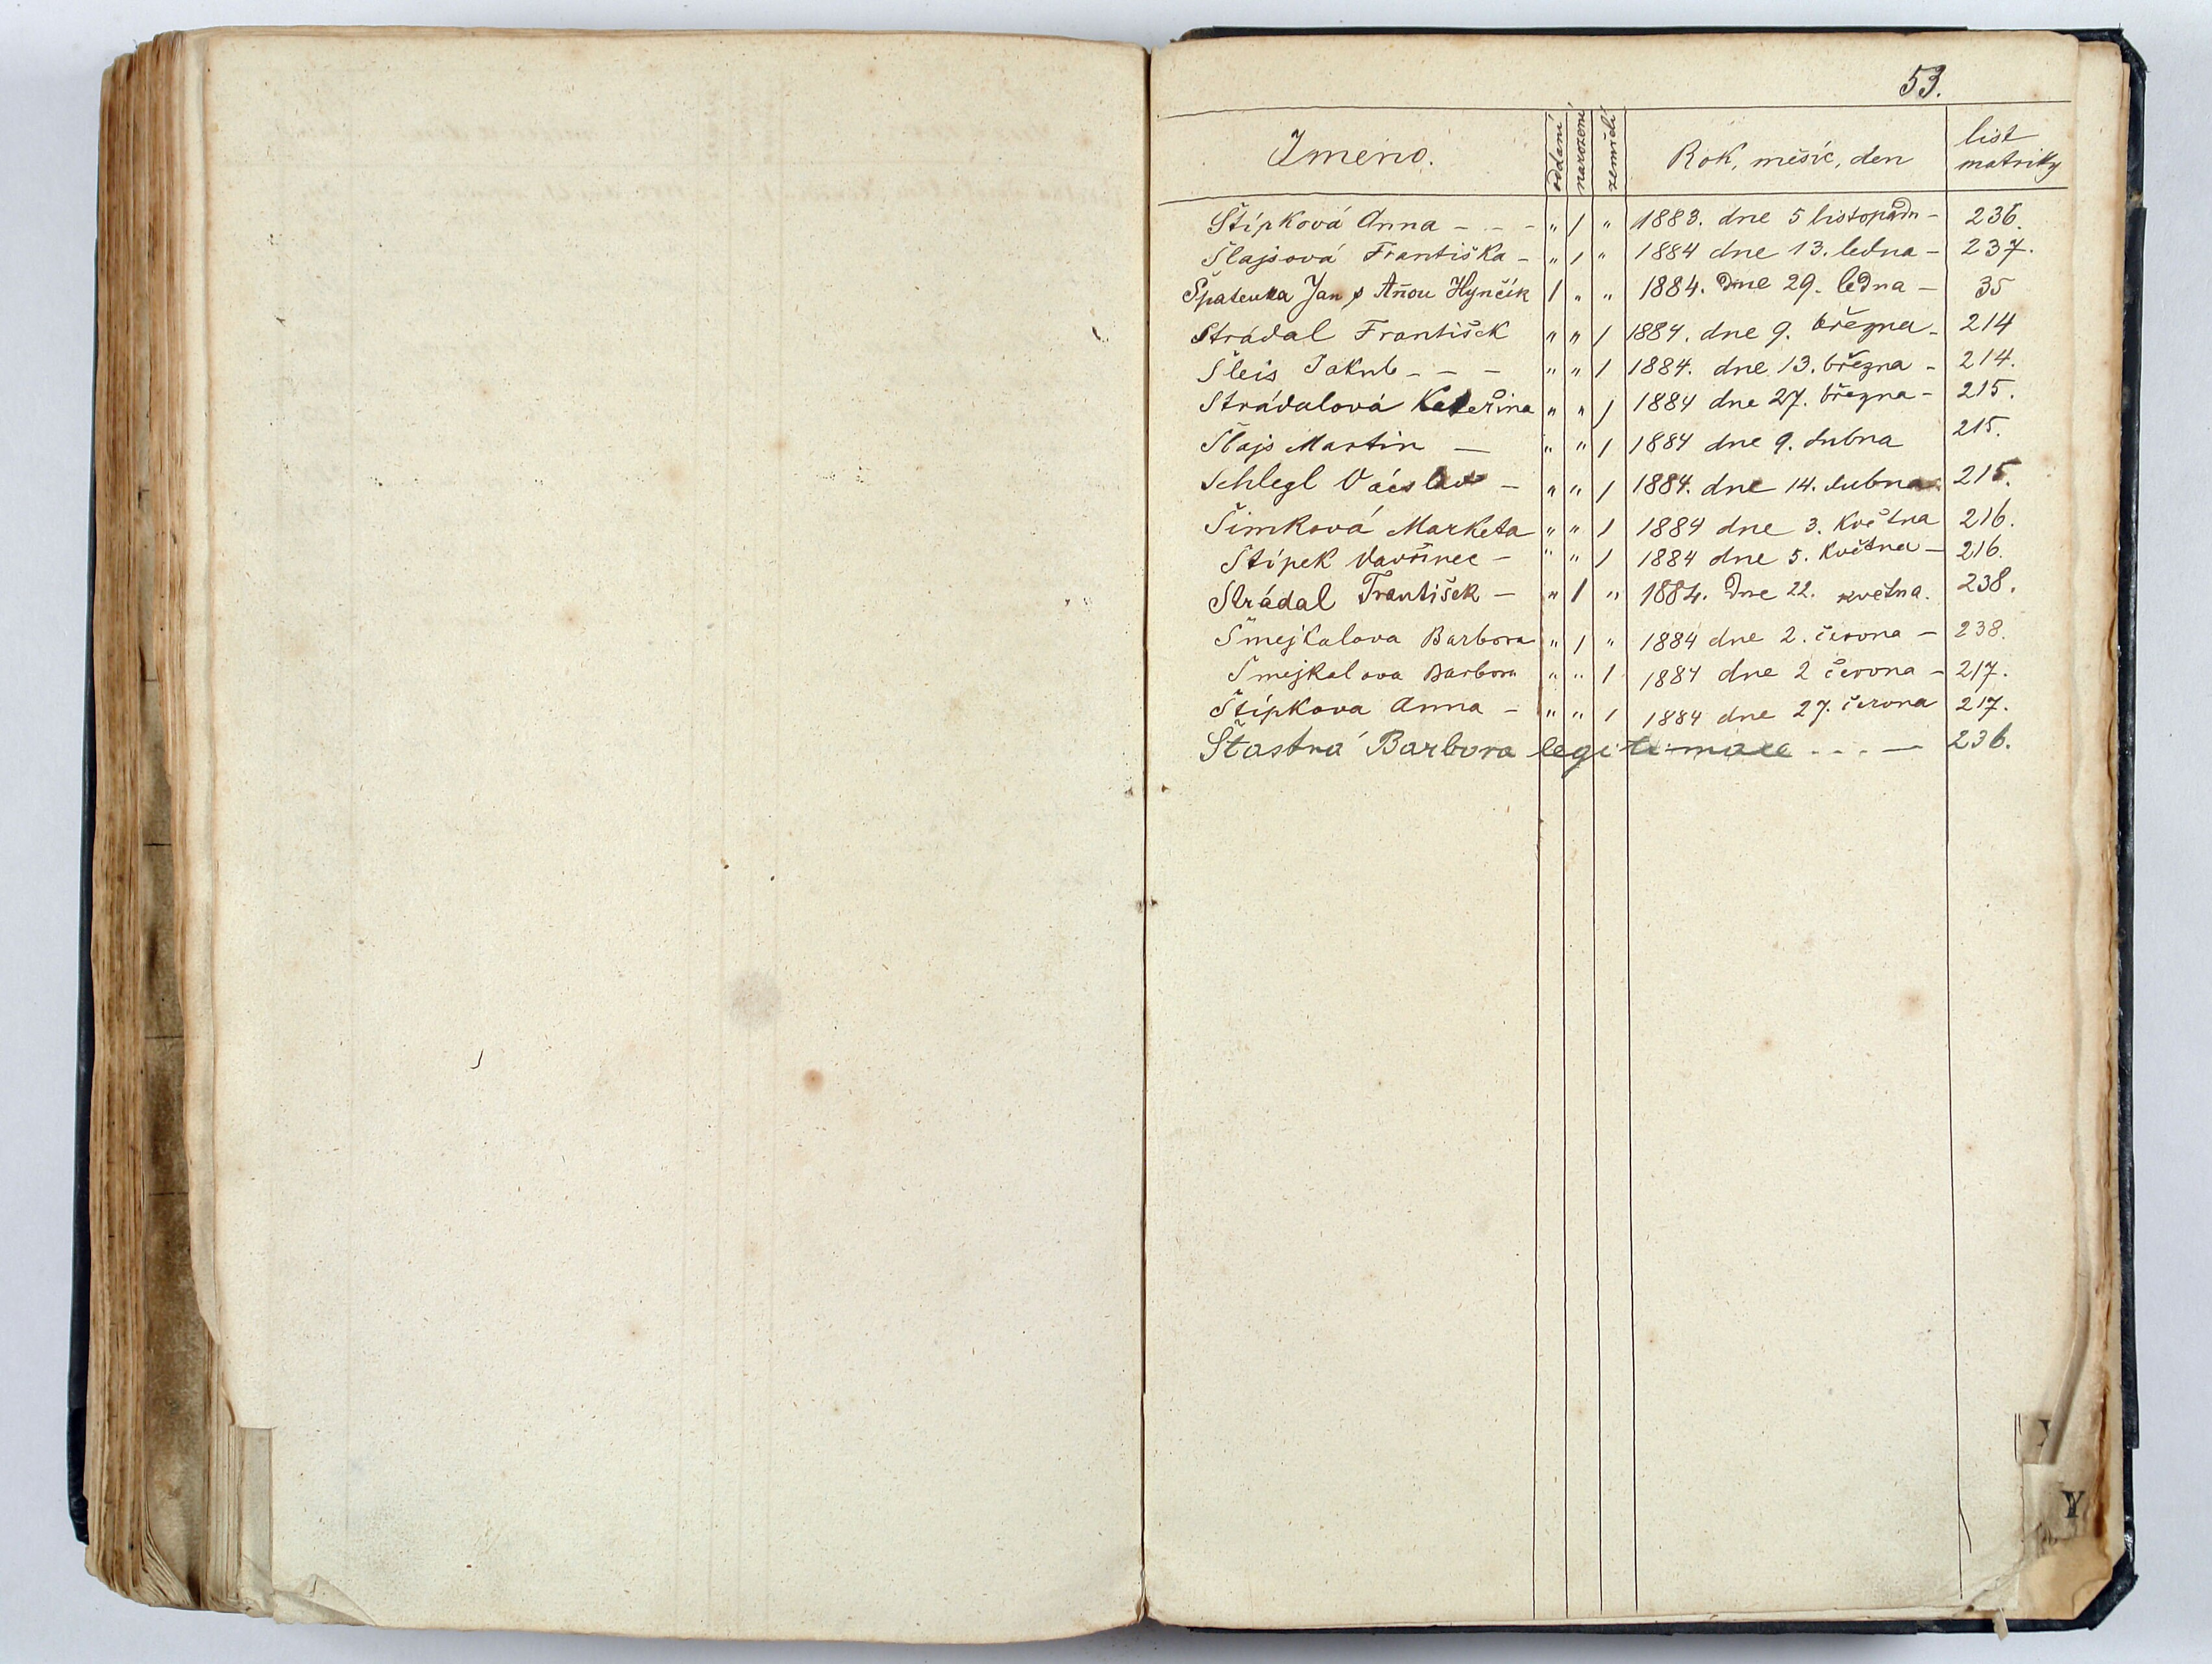 53.
Jmeno. oddaní narození zemřelí Rok, měsíc, den list
matriky
Štípková Anna - - - " / " 1883. dne 5 listopadu - 236.
Šlajsová Františka - " / " 1884 dne 13. ledna - 237.
Špatenka Jan s Añou Hynčík / " " 1884. dne 29. ledna - 35
Strádal František " " / 1884. dne 9. března - 214
Šleis Jakub - - - " " / 1884. dne 13. března - 214.
Strádalová Kateřina " " / 1884 dne 27. března - 215.
Šlajs Martin — " " / 1884 dne 9. dubna 215.
Schlegl Václav - " " / 1884. dne 14. dubna 215.
Šimková Marketa " " / 1884 dne 3. Května 216.
Štípek Vavřinec - " " / 1884 dne 5. Května - 216.
Strádal František - " / " 1884. dne 22. května. 238.
Šmejkalova Barbora " / " 1884 dne 2. června - 238.
Smejkalova Barbora " " / 1884 dne 2 června - 217.
Štípkova Anna - " " / 1884 dne 27. června 217.
Stastná Barbora legitimace - - - — 236.
Y